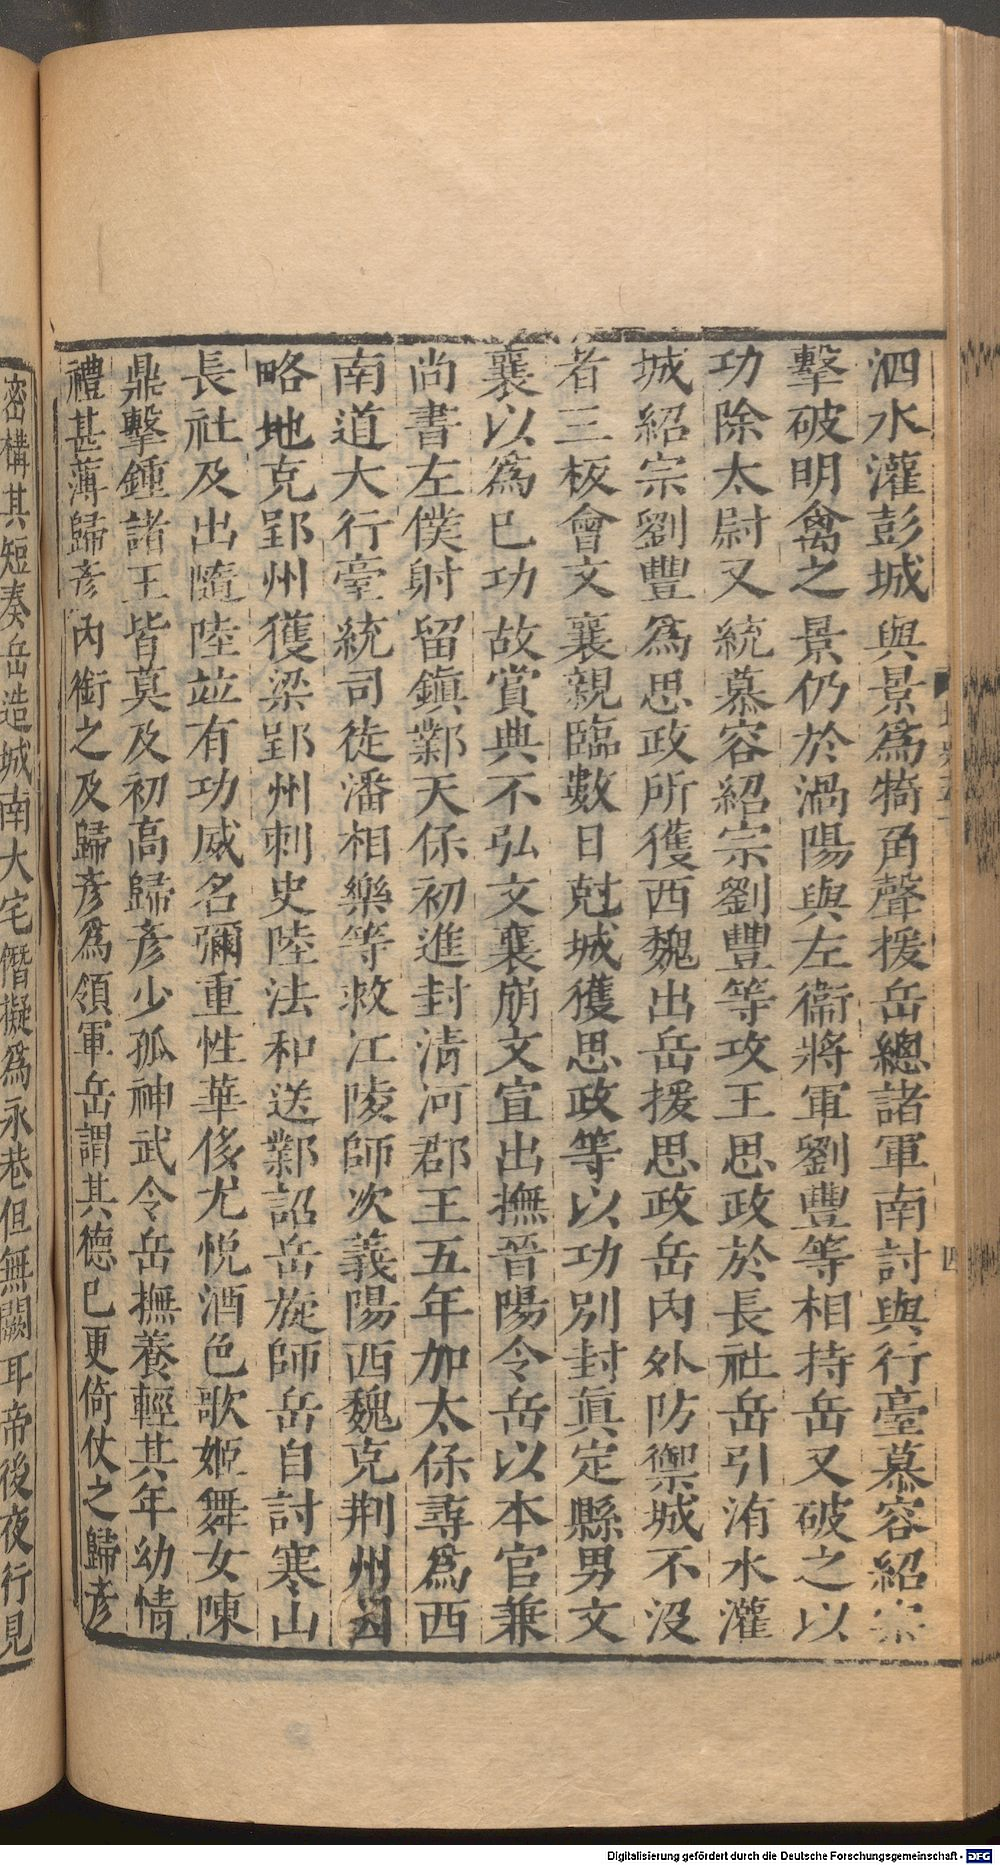 泗水灌彭城與景爲犄角聲援岳總諸軍南討與行臺慕容紹宗
擊破明禽之景仍於渦陽與左衞將軍劉豐等相持岳又破之以
功除太尉又統慕容紹宗劉豐等攻王思政於長社岳引洧水灌
城紹宗劉豐爲思政所獲西魏出岳援思政岳內外防禦城不沒
者三板會文襄親臨數日尅城獲思政等以功別封眞定縣男文
襄以爲已功故賞典不弘文襄崩文宣出撫晉陽令岳以本官兼
尚書左僕射留鎭鄴天保初進封淸河郡王五年加太保尋爲西
南道大行臺統司徒潘相樂等救江陵師次義陽西魏克荆州因
略地克郢州獲梁郢州刺史陸法和送鄴詔岳旋師岳自討寒山
長社及出隨陸竝有功威名彌重性華侈尤悅酒色歌姬舞女陳
鼎擊鍾諸王皆莫及初高歸彥少孤神武令岳撫養輕其年幼情
禮甚薄歸彥內銜之及歸彥爲領軍岳謂其德已更倚仗之歸彥
密構其短奏岳造城南大宅僭擬爲永巷但無闕耳帝後夜行見
四
Digitalisierung gefördert durch die Deutsche Forschungsgemeinschaft - DFG